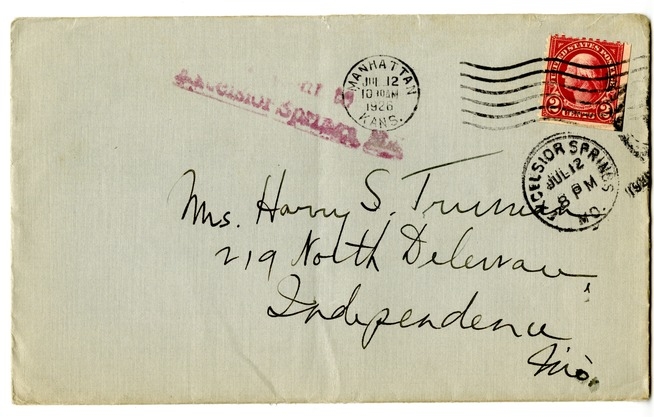 MANHATTAN
JUL 12
10 30 AM
1926
KANS.
UNITED STATES POSTAGE
2 CENTS 2
at
Excelsior Springs, Mo.
EXCELSIOR SPRINGS
JUL 12
8 PM
MO.
Mrs. Harry S. Truman
219 North Delaware
Independence
Mo.